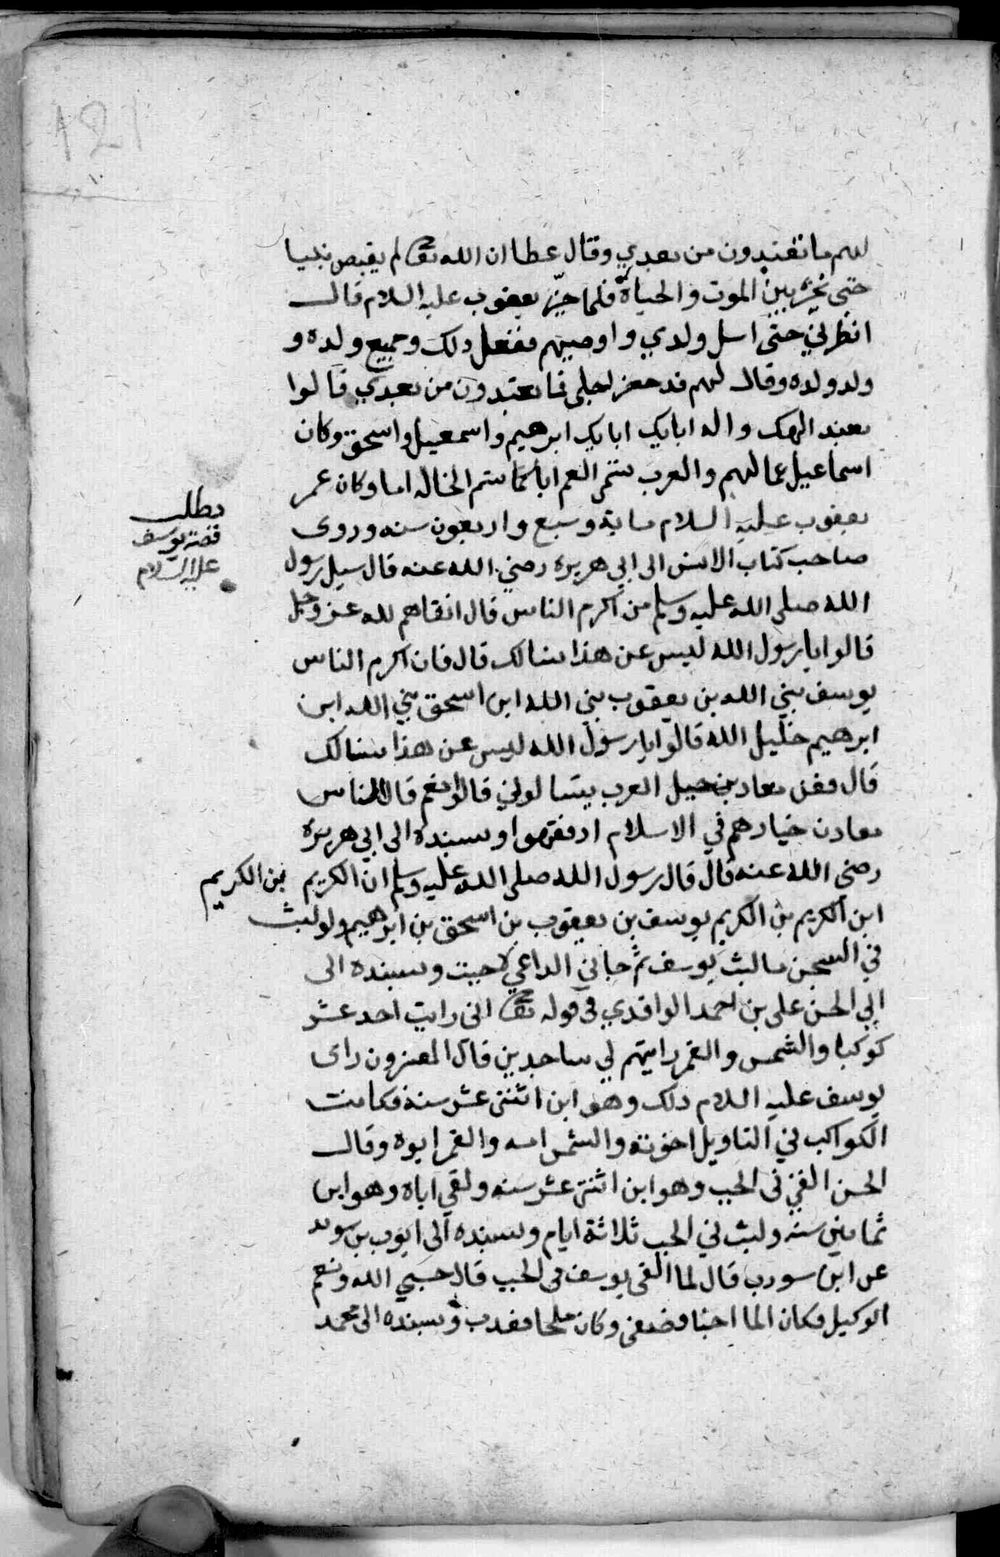 121
لهم ما تعبدون من بعدي وقال عطا ان الله تعا لم يقبض نبيا
حتى يخيره بين الموت والحياة فلما خير يعقوب عليه السلام قال
انظرني حتى اسل ولدي واوصيهم ففعل ذلك وجميع ولده و
ولد ولده وقال لهم قد حضر اجلى فما تعبدون من بعدي قالوا
نعبد الهك واله ابايك ابراهيم واسمعيل واسحق وكان
اسماعيل عما لهم والعرب تسمى العم ابا كما تسم الخاله اما وكان عمر
يعقوب عليه السلام ماية وسبع واربعون سنه وروى
مطلب
قصة يوسف
عليه السلام
صاحب كتاب الانس الى ابي هريرة رضي الله عنه قال سيل رسول
الله صلى الله عليه وسلم من اكرم الناس قال اتقاهم لله عز وجل
قالوا يا رسول الله ليس عن هذا نسالك قال فان اكرم الناس
يوسف نبي الله بن يعقوب نبي الله ابن اسحق نبي الله ابن
ابرهيم خليل الله قالوا يا رسول الله ليس عن هذا نسالك
قال فعن معادن العرب تسالوني قالوا نعم قال الناس
معادن خيارهم في الاسلام اذ فقهوا وبسنده الى ابي هريرة
رضي الله عنه قال قال رسول الله صلى الله عليه وسلم ان الكريم بن الكريم
ابن الكريم بن الكريم يوسف بن يعقوب بن اسحق بن ابرهيم ولو لبث
في السجن ما لبث يوسف ثم جاني الداعي لاجبت وبسنده الى
ابي الحسن على بن احمد الواقدي في قوله تعا اني رايت احد عشر
كوكبا والشمس والقمر رايتهم لي ساجدين قال المفسرون راى
يوسف عليه السلام ذلك وهو ابن اثنتي عشر سنة فكانت
الكواكب في التاويل اخوته والشمس امه والقمر ابوه وقال
الحسن القي في الجب وهو ابن اثنتي عشر سنه ولقي اباه وهو ابن
ثمانين سنه ولبث في الجب ثلاثة ايام وبسنده الى ايوب بن سويد
عن ابن سورب قال لما القى يوسف في الجب قال حسبي الله ونعم
الوكيل فكان الما وكان ملحا فعذب وبسنده الى محمد